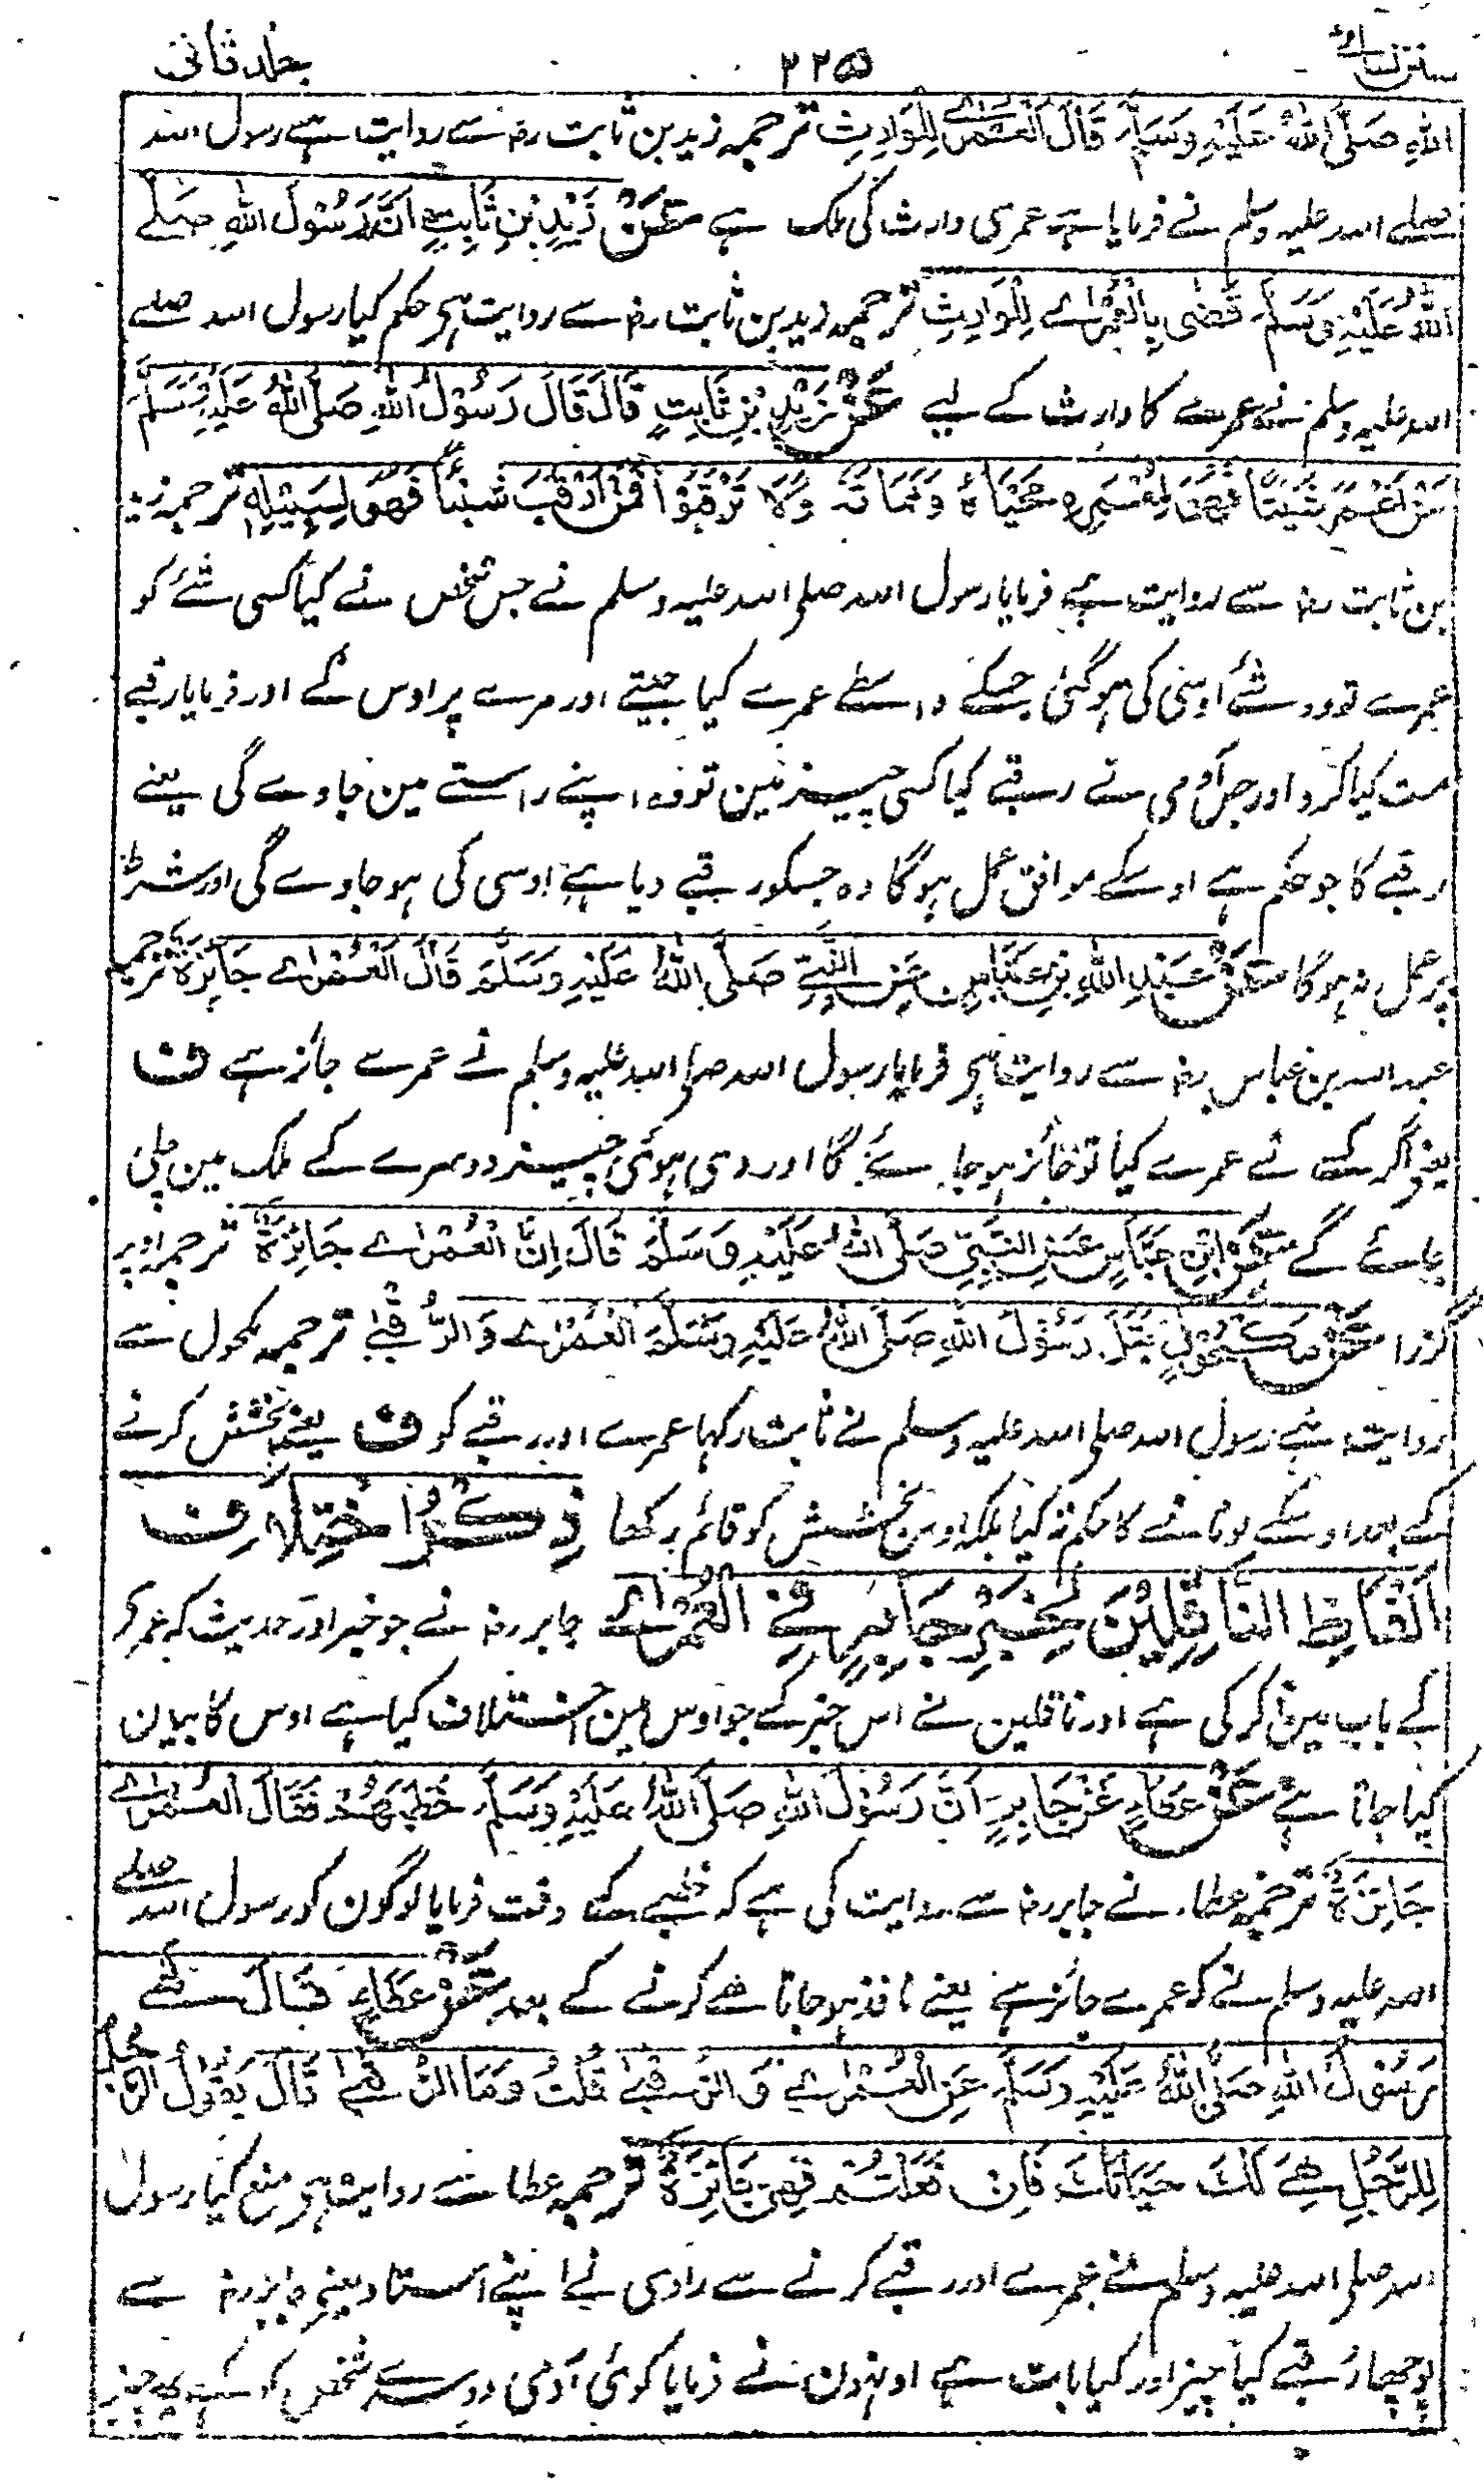 سنن نسائی ۲۲۵ جلد ثانی
اللهِ صَلَّى اللهُ عَلَيْهِ وَسَلَّمَ قَالَ الْعُمْرٰے لِلْوَارِثِ ترجمہ زید بن ثابت رضہ سے روایت ہے رسول اللہ
صلے اللہ علیہ وسلم نے فرمایا ہے عمری وارث کی ملک ہے عَنْ زَيْدِ بْنِ ثَابِتٍ اَنَّ رَسُوْلَ اللهِ صَلَّے
اللهُ عَلَيْهِ وَسَلَّمَ قَضٰى بِالْعُمْرٰے لِلْوَارِثِ ترجمہ زید بن ثابت رضہ سے روایت ہے حکم کیا رسول اللہ صلے
اللہ علیہ وسلم نے عمرے کا وارث کے لیے عَنْ زَيْدِ بْنِ ثَابِتٍ قَالَ قَالَ رَسُوْلُ اللهِ صَلَّى اللهُ عَلَيْهِ وَسَلَّمَ
مَنْ اَعْمَرَ شَيْئًا فَهُوَ لِمُعْمَرِهٖ مَحْيَاهُ وَمَمَاتَهُ وَلَا تَرْقُبُوْا فَمَنْ اَرْقَبَ شَيْئًا فَهُوَ لِسَبِيْلِهٖ ترجمہ زید
بن ثابت رضہ سے روایت ہے فرمایا رسول اللہ صلی اللہ علیہ وسلم نے جس شخص نے کیا کسی شئے کو
عمرے تو وہ شئے اوسی کی ہو گئی جسکے واسطے عمرے کیا جیتے اور مرے پر اوس کے اور فرمایا رقبے
مت کیا کرو اور جس آدمی نے رقبے کیا کسی چیز میں تو وہ اپنے راستے مین جاوے گی یعنے
رقبے کا جو حکم ہے اوسکے موافق عمل ہوگا وہ جسکو رقبے دیا ہے اوسی کی ہو جاوے گی اور شرط
پر عمل نہ ہوگا عَنْ عَبْدِ اللهِ بْنِ عَبَّاسٍ عَنِ النَّبِيِّ صَلَّى اللهُ عَلَيْهِ وَسَلَّمَ قَالَ الْعُمْرٰے جَائِزَةٌ ترجمہ
عبد اللہ بن عباس رضہ سے روایت ہے فرمایا رسول اللہ صلی اللہ علیہ وسلم نے عمرے جائز ہے ف
یعنے اگر کسی نے عمرے کیا تو جائز ہو جائے گا اور دی ہوئی چیز دوسرے کے ملک مین چلی
جائے گے عَنِ ابْنِ عَبَّاسٍ عَنِ النَّبِيِّ صَلَّى اللهُ عَلَيْهِ وَسَلَّمَ قَالَ اِنَّ الْعُمْرٰے جَائِزَةٌ ترجمہ اوپر
گزرا عَنْ مَكْحُوْلٍ بَتَلَ رَسُوْلُ اللهِ صَلَّى اللهُ عَلَيْهِ وَسَلَّمَ الْعُمْرٰے وَالرُّقْبٰے ترجمہ مکحول سے
روایت ہے رسول اللہ صلی اللہ علیہ وسلم نے ثابت رکہا عمرے اور رقبے کو ف یعنے بخشش کرنے
کے بعد اوسکے لوٹانے کا حکم نہ کیا بلکہ اوس بخشش کو قائم رکھا ذِكْرُ اخْتِلَافِ
اَلْفَاظِ النَّاقِلِيْنَ لِخَبَرِ جَابِرٍ فِے الْعُمْرٰے جابر رضہ نے جو خبر اور حدیث کہ عمری
کے باب مین ذکر کی ہے اور ناقلین نے اس خبر کے جو اوس مین اختلاف کیا ہے اوس کا بیان
کیا جاتا ہے عَنْ عَطَاءٍ عَنْ جَابِرٍ اَنَّ رَسُوْلَ اللهِ صَلَّى اللهُ عَلَيْهِ وَسَلَّمَ خَطَبَهُمْ فَقَالَ الْعُمْرٰے
جَائِزَةٌ ترجمہ عطاء نے جابر رضہ سے روایت کی ہے کہ خطبے کے وقت فرمایا لوگون کو رسول اللہ صلے
اللہ علیہ وسلم نے کہ عمرے جائز ہے یعنے نافذ ہو جاتا ہے کرنے کے بعد عَنْ عَطَاءٍ قَالَ نَهٰے
رَسُوْلُ اللهِ صَلَّى اللهُ عَلَيْهِ وَسَلَّمَ عَنِ الْعُمْرٰے وَالرُّقْبٰے قُلْتُ وَمَا الرُّقْبٰے قَالَ يَقُوْلُ الرَّجُلُ
لِلرَّجُلِ هِيَ لَكَ حَيَاتَكَ فَاِنْ فَعَلْتُمْ فَهِيَ جَائِزَةٌ ترجمہ عطا سے روایت ہے منع کیا رسول
اللہ صلی اللہ علیہ وسلم نے عمرے اور رقبے کرنے سے راوی نے اپنے استاد یعنے جابر رضہ سے
پوچھا رقبے کیا چیز اور کیا بات ہے اونہون نے فرمایا کوئی آدمی دوسرے شخص کو کہے یہ چیز